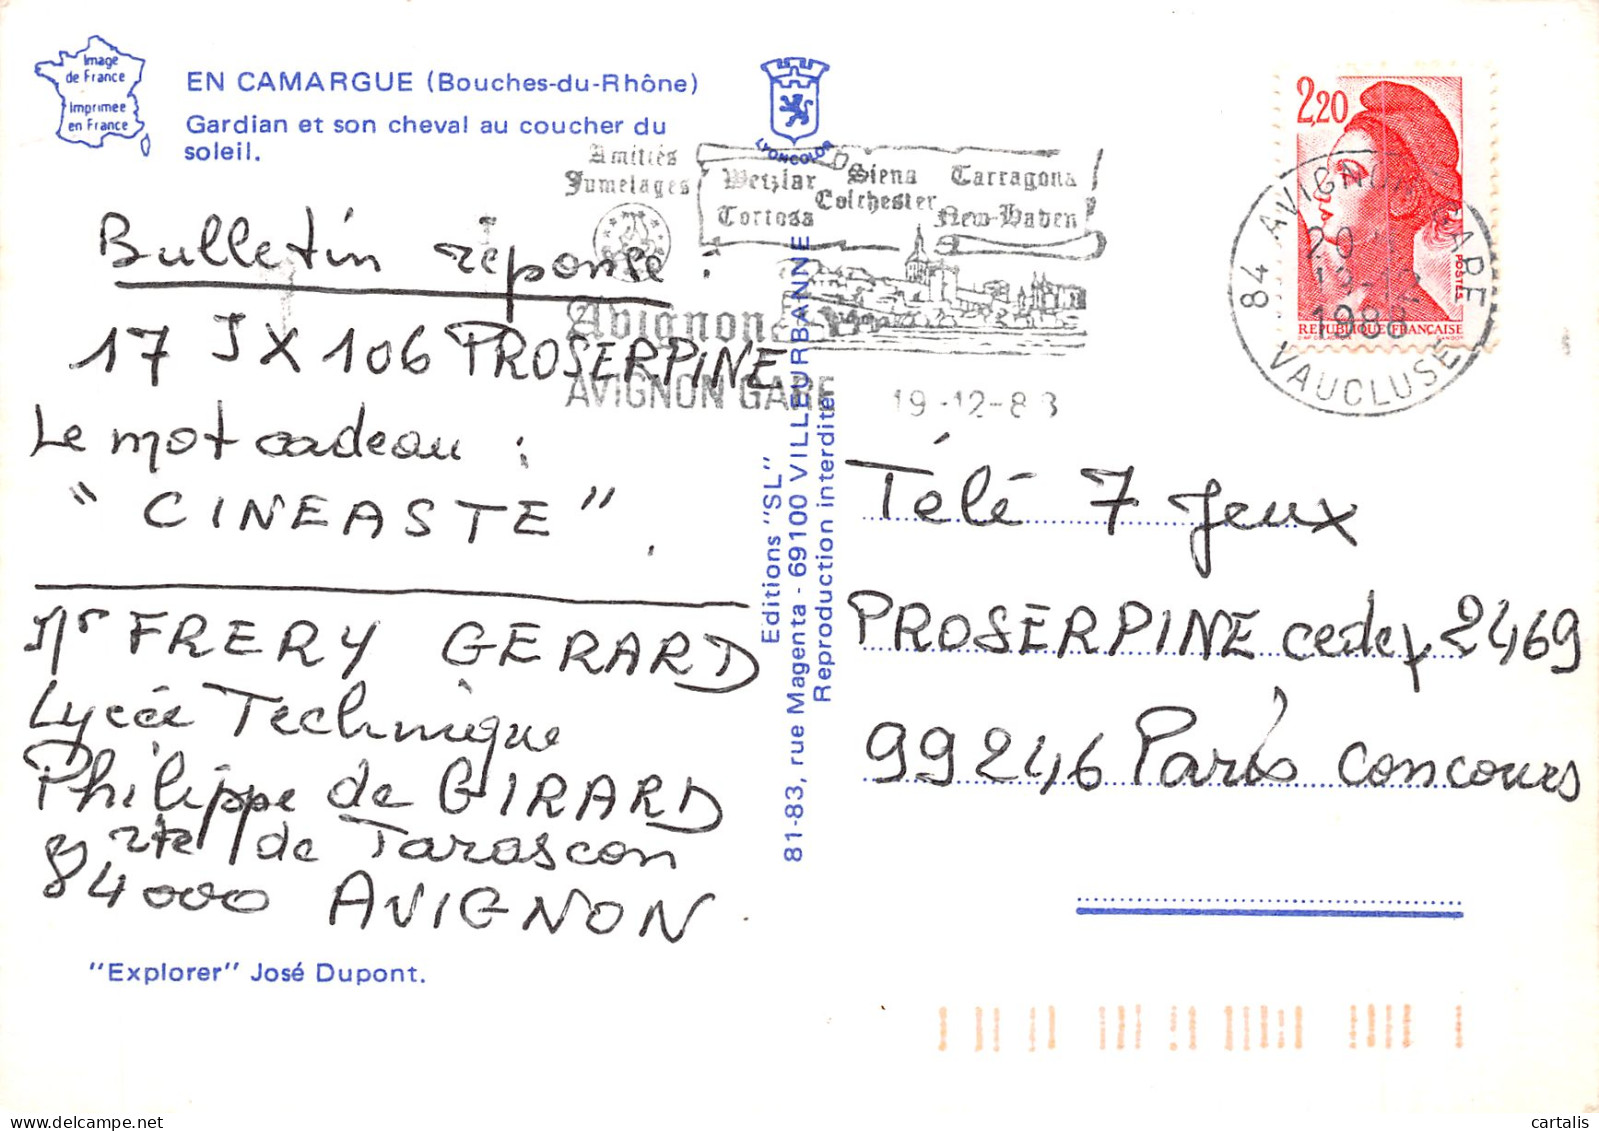 Image
de France
Imprimée
en France
EN CAMARGUE (Bouches-du-Rhône)
Gardian et son cheval au coucher du
soleil.
LYONCOLOR
Amitiés
Jumelages
Wetzlar Siena Tarragona
Colchester
Tortosa New-Haven
Avignon
AVIGNON GARE 19-12-88
2,20
POSTES
REPUBLIQUE FRANÇAISE
84 AVIGNON GARE
20 H
19-12
1988
VAUCLUSE
Bulletin réponse :
17 JX 106 PROSERPINE
Le mot cadeau :
"CINEASTE".
Mr FRERY GERARD
Lycée Technique
Philippe de GIRARD
rte de Tarascon
84000 AVIGNON
"Explorer" José Dupont.
Editions "SL"
81-83, rue Magenta - 69100 VILLEURBANNE
Reproduction interdite
Télé 7 Jeux
PROSERPINE cedex 2469
99246 Paris concours
cartalis